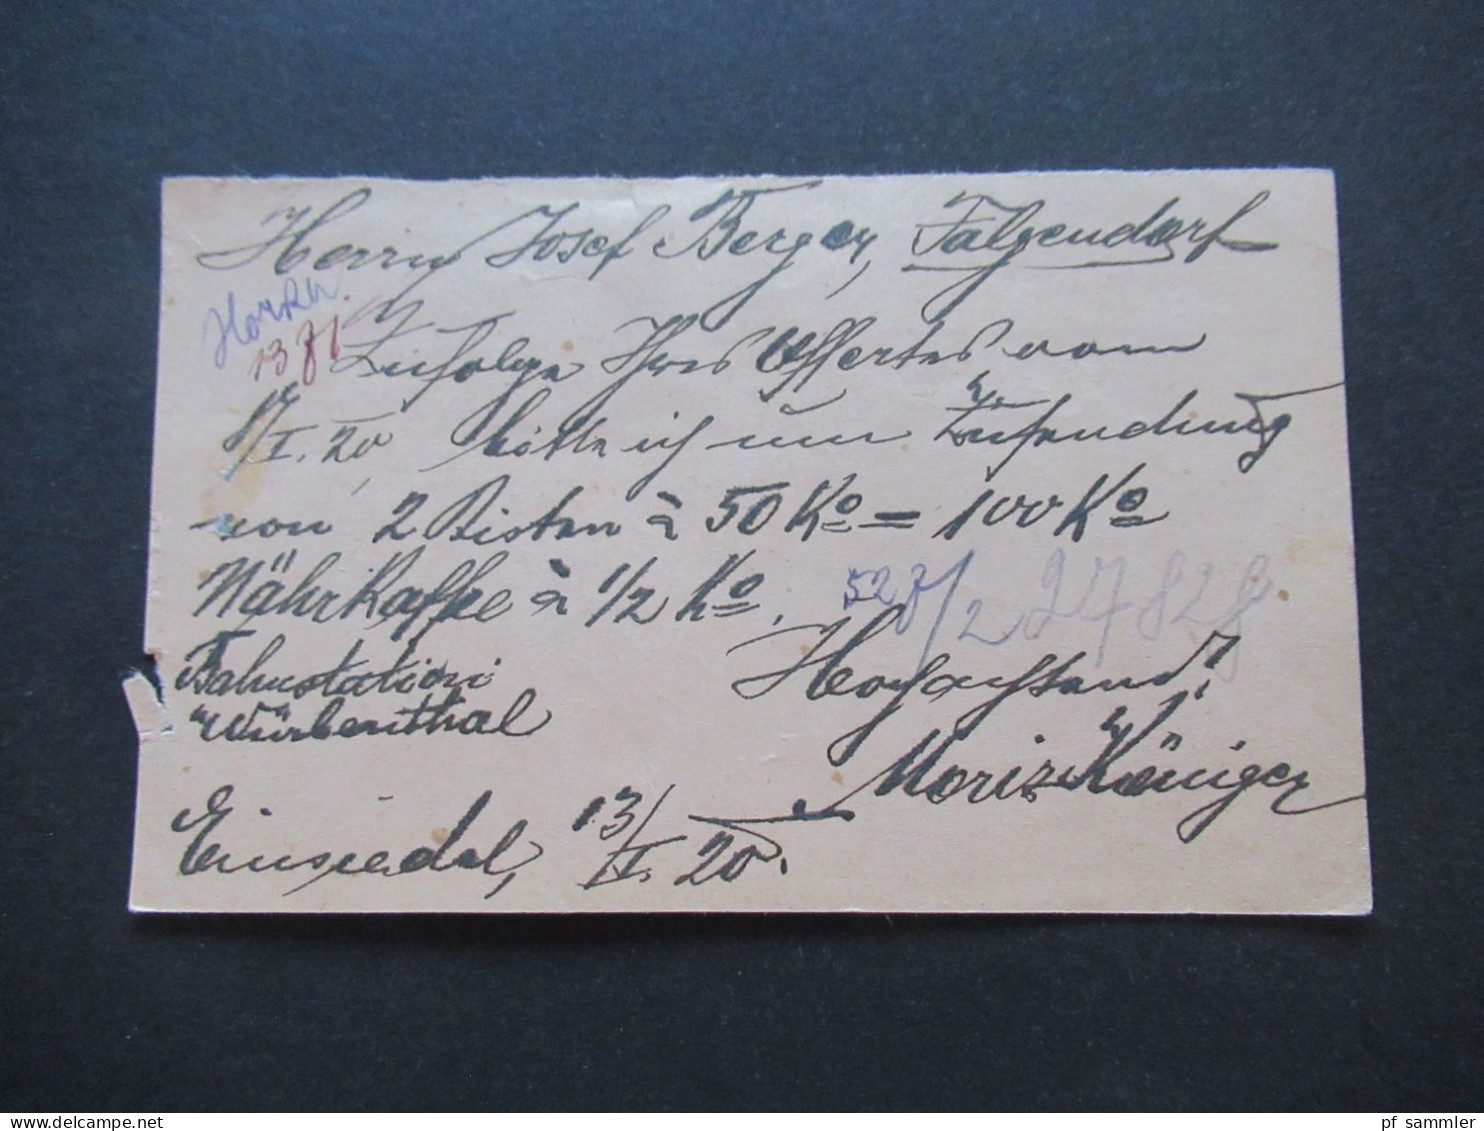 Herrn Josef Berger, Falgendorf
1381
Zufolge Ihres Offertes vom
8/I. 20, bitte ich um Zusendung
von 2 Kisten à 50 Ko = 100 Ko
Nährkaffee à 1/2 Ko.
527/2 27828
Bahnstation
"Würbenthal
Hochachtend
Moriz Königer
Einsiedel, 13/II. 20.
pf_sammler